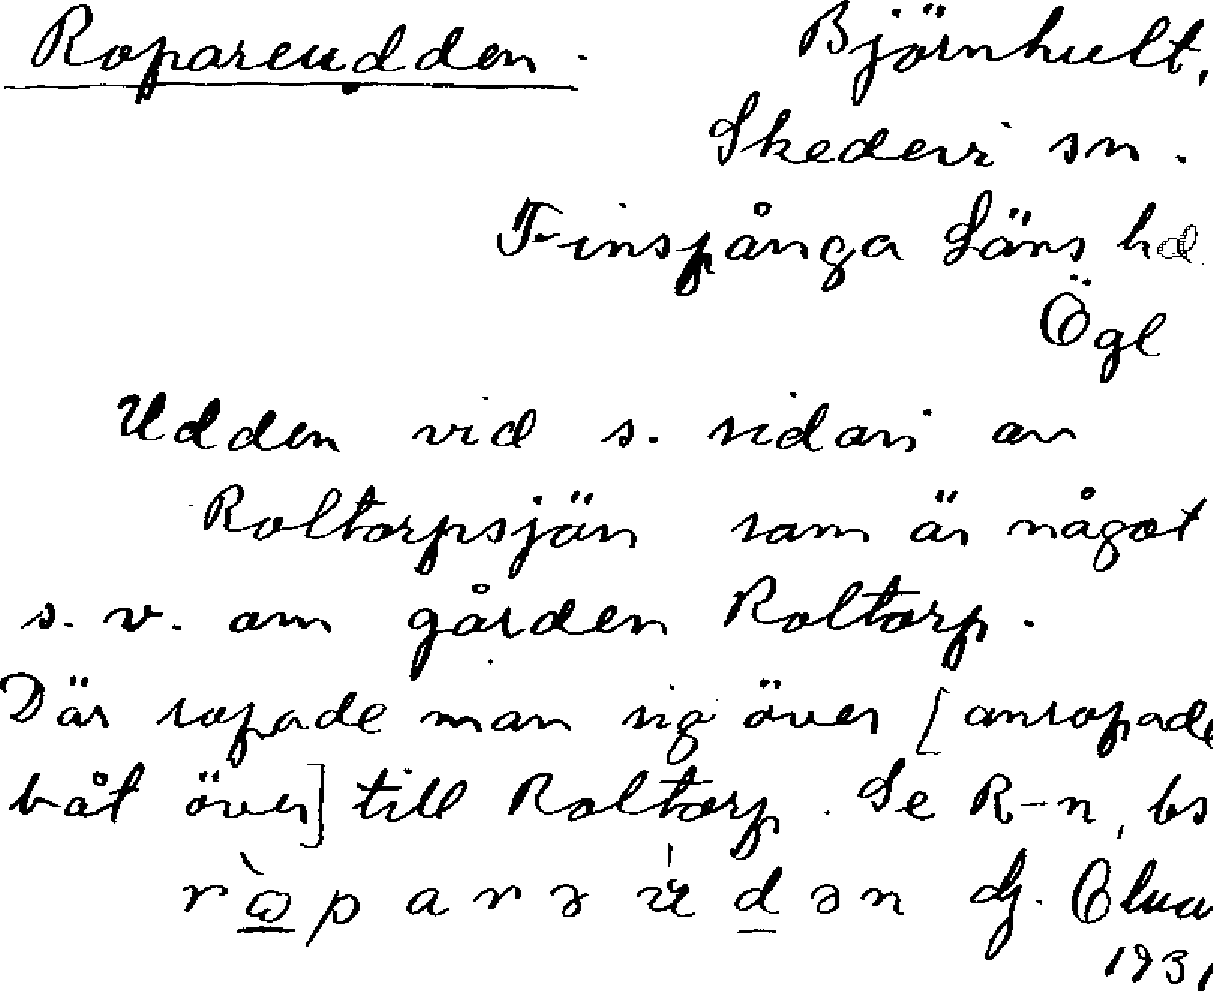 Ropareudden. Björnhult,
Skedevi sn.
Finspånga Läns hd
Ögl
Udden vid s. sidan av
Roltorpsjön som är något
s. v. om gården Roltorp.
Där ropade man sig över [anropade
båt över] till Roltorp. Se R-n, bs
ròparə ud ən dj. Elwa
1931